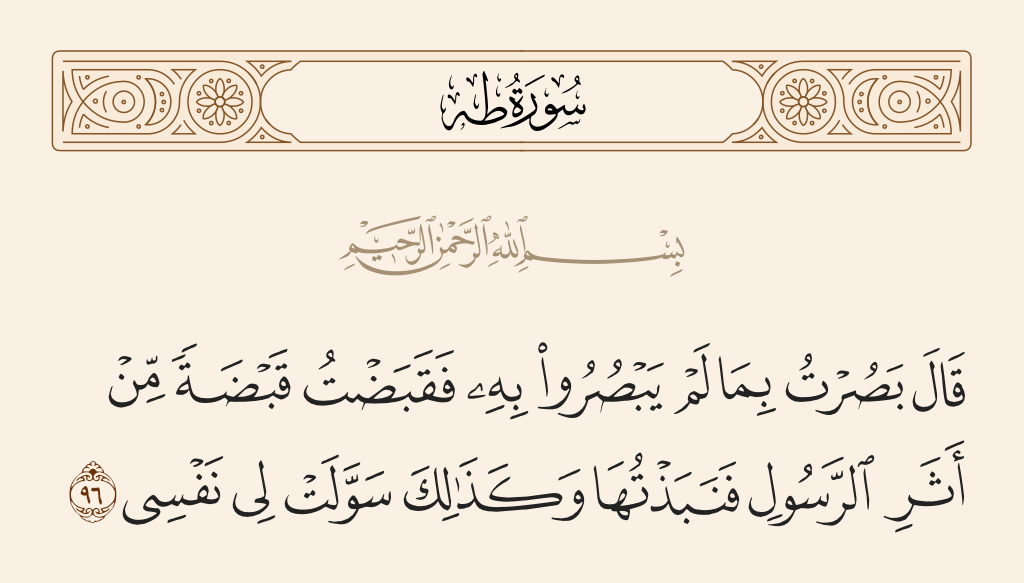 سُورَةُ طه
بِسْمِ ٱللَّهِ ٱلرَّحْمَٰنِ ٱلرَّحِيمِ
قَالَ بَصُرْتُ بِمَا لَمْ يَبْصُرُوا۟ بِهِۦ فَقَبَضْتُ قَبْضَةً مِّنْ
أَثَرِ ٱلرَّسُولِ فَنَبَذْتُهَا وَكَذَٰلِكَ سَوَّلَتْ لِى نَفْسِى ٩٦